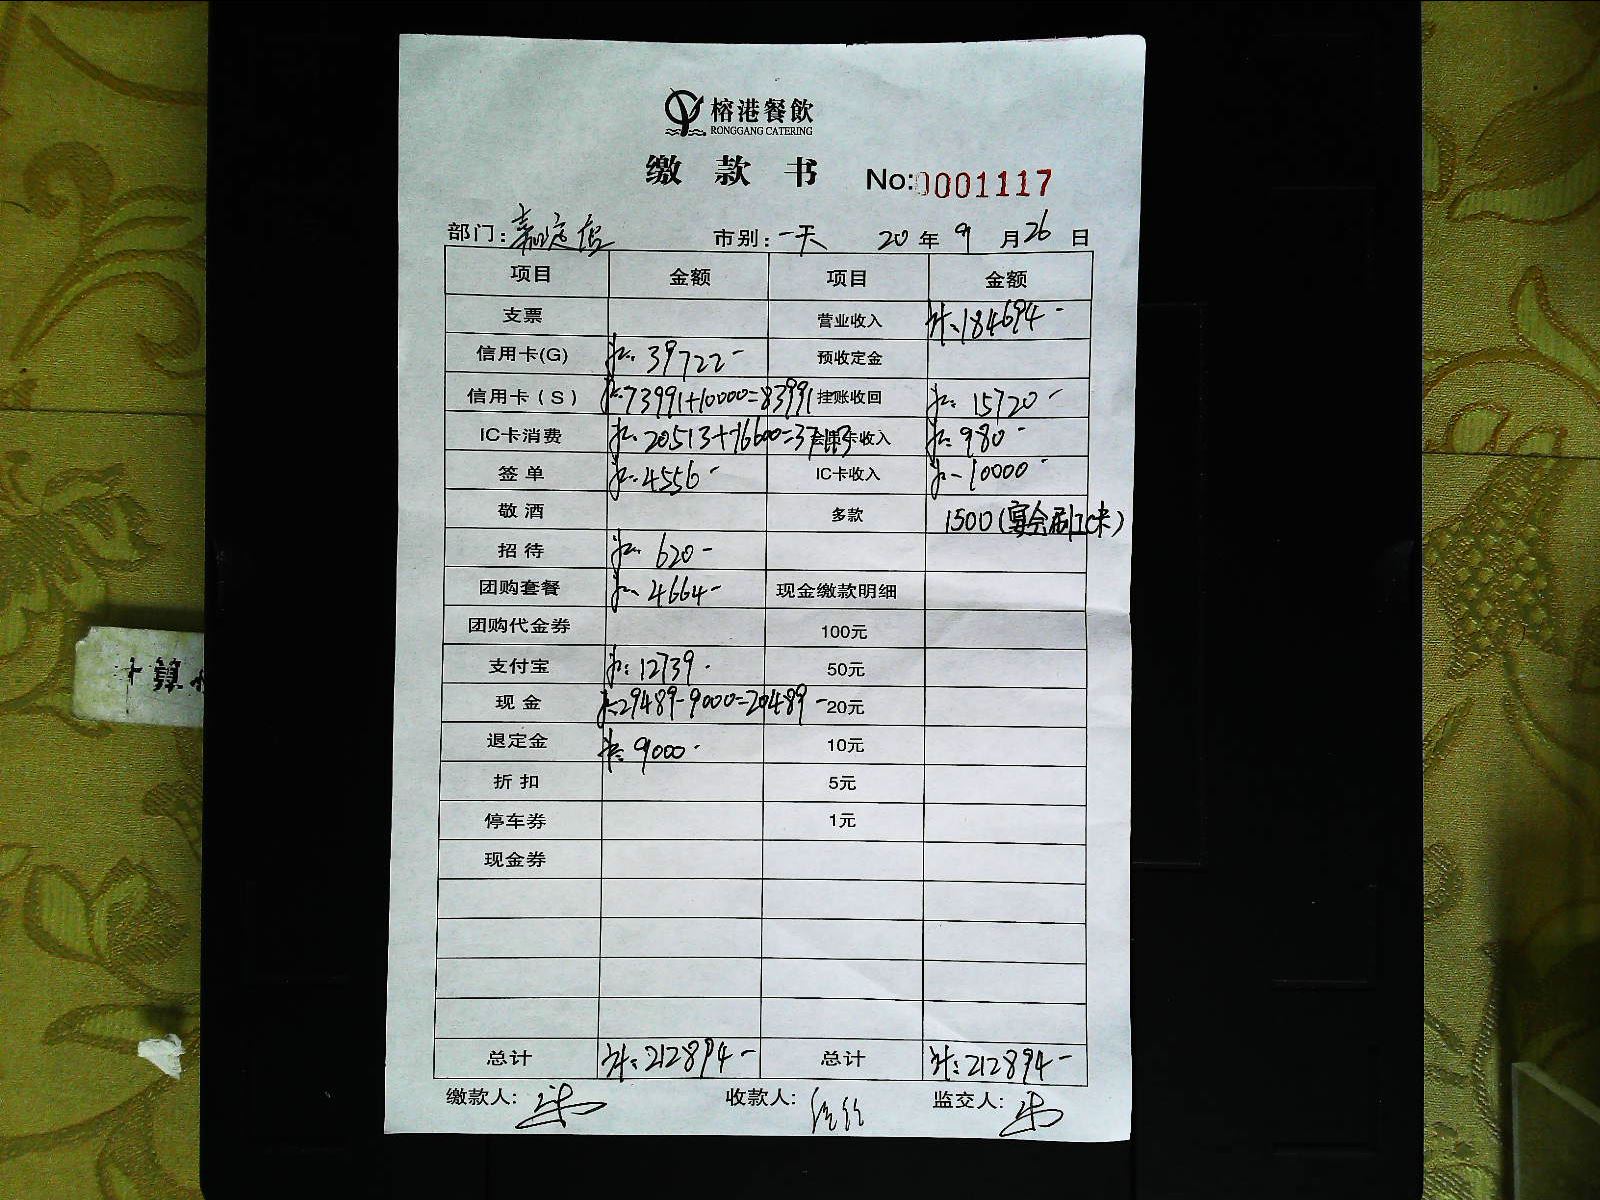 榕港餐飲
RONGGANG CATERING
缴 款 书 No:0001117
部门: 嘉定店 市别: 一天 20 年 9 月 26 日
项目 金额 项目 金额
支票 营业收入 计:184694-
信用卡(G) 计:39722- 预收定金
信用卡(S) 计:73991+10000=83991 挂账收回 计:15720-
IC卡消费 计:20513+16600=37113 会员卡收入 计:980-
签单 计:4556- IC卡收入 计-10000-
敬酒 多款 1500(宴会刷IC卡)
招待 计:620-
团购套餐 计:4664- 现金缴款明细
团购代金券 100元
支付宝 计:12739- 50元
现金 计:29489-9000=20489- 20元
退定金 计:9000- 10元
折扣 5元
停车券 1元
现金券
总计 计:212894- 总计 计:212894-
缴款人: 收款人: 监交人:
计算